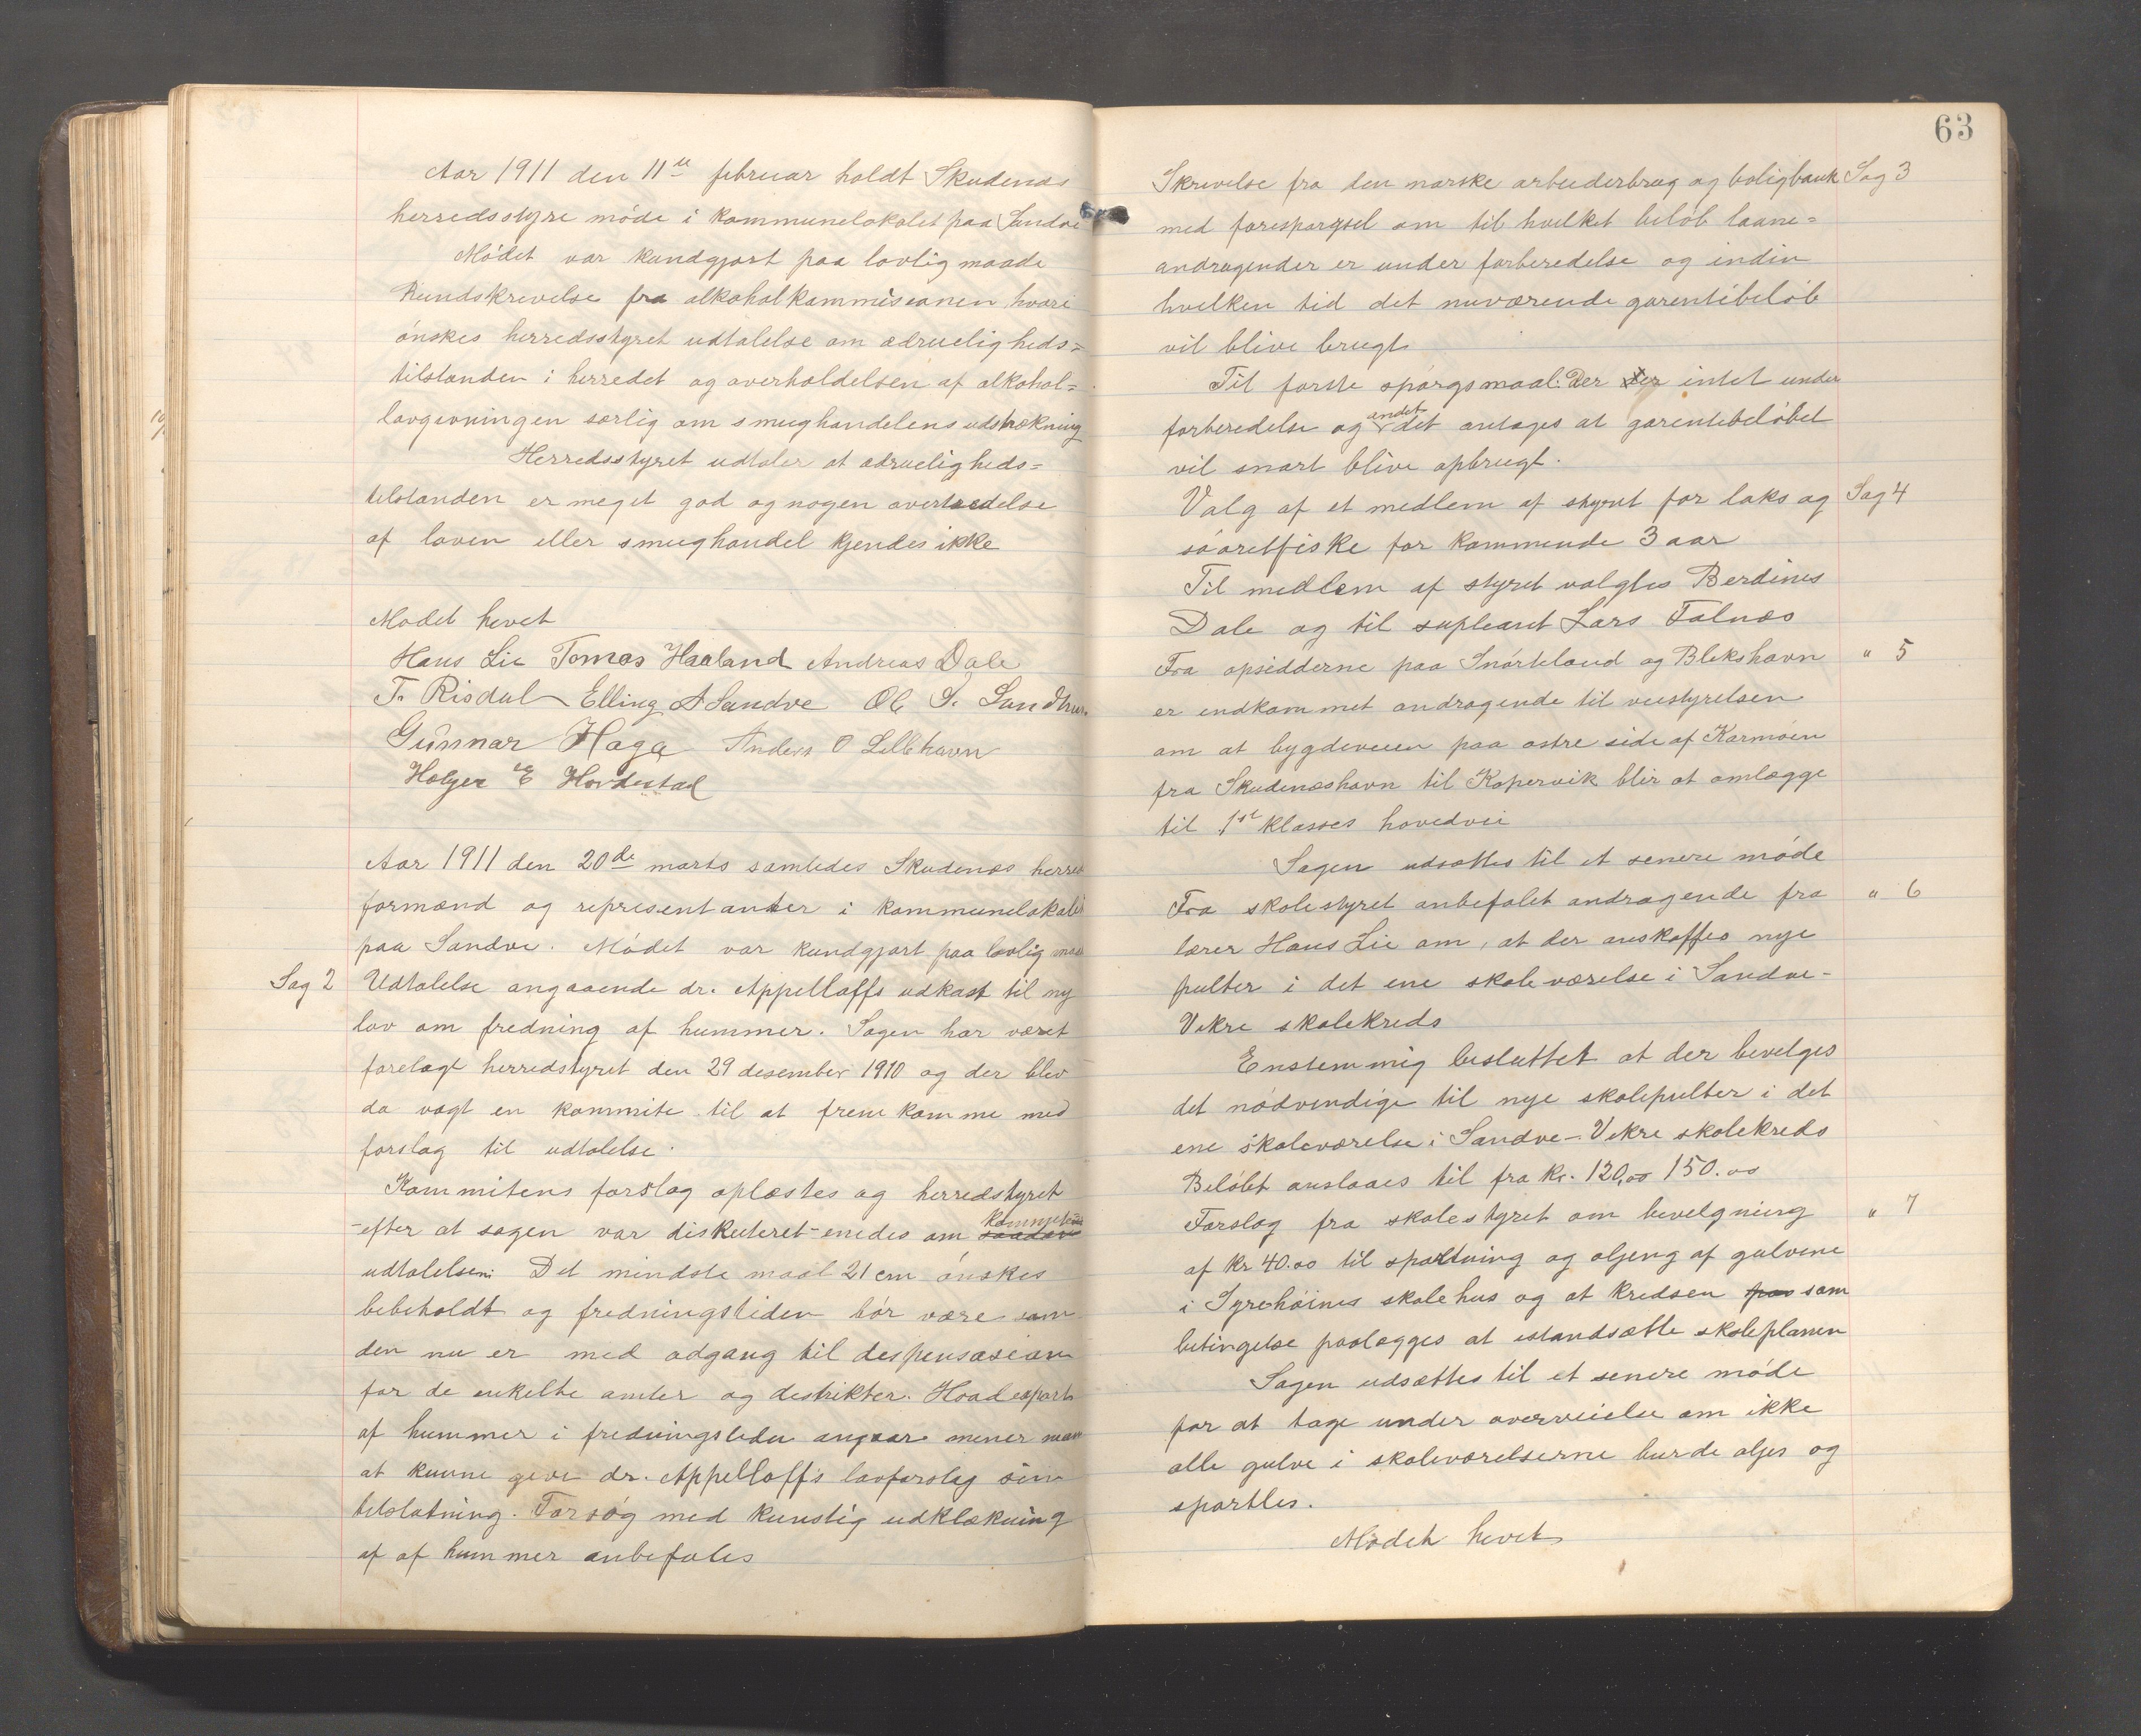 Aar 1911 den 11te februar holdt Skudenæs
herredsstyre möde i kommunelokalet paa Sandve
Mödet var kundgjort paa lovlig maade
Rundskrivelse fra alkoholkommisionen hvori
önskes herredsstyret udtalelse om ædrueligheds=
tilstanden i herredet og overholdelsen af alkohol=
lovgivningen særlig om smughandelens udstrækning
Herredsstyret udtaler at ædrueligheds=
tilstanden er meget god og nogen overtrædelse
af loven eller smughandel kjendes ikke
Mødet hevet
Hans Lie Tomas Haaland Andreas Dale
T. Risdal Elling A Sandve Ole S. Sandhus
Gunnar Haga Anders O Lillehavn
Holger E Hovdestad
Aar 1911 den 20de marts samledes Skudenæs herreds
formænd og representanter i kommunelokalet
paa Sandve. Mödet var kundgjort paa lovlig maade
Sag 2 Udtalelse angaaende dr. Appelloffs udkast til ny
lov om fredning af hummer. Sagen har været
forelagt herredstyret den 29 desember 1910 og der blev
da vagt en kommite til at fremkomme med
forslag til udtalelse.
Kommitens forslag oplæstes og herredstyret
-efter at sagen var diskuteret- enedes om kommitens
udtalelsen: Det mindste maal 21 cm önskes
bebeholdt og fredningstiden bör være som
den nu er med adgang til despensasion
for de enkelte amter og destrikter. Hvad export
af hummer i fredningstiden angaar mener man
at kunne give dr. Appelloff's lovforslag sin
tilslutning. Forsög med kunstig udklækning
af af hummer anbefales
63
Skrivelse fra den norske arbeiderbrug og boligbank Sag 3
med forespørgsel om til hvilket belöb laane=
andragender er under forberedelse og inden
hvilken tid det nuværende garentibelöb
vil blive brugt
Til förste spörgsmaal: Der er intet under
andet
forberedelse og det antages at garentibelöbet
vil snart blive opbrugt.
Valg af et medlem af styret for laks og Sag 4
söoretfiske for kommende 3 aar
Til medlem af styret valgtes Berdines
Dale og til supleant Lars Falnæs
Fra opsidderne paa Snörteland og Blekshavn " 5
er endkommet andragende til veistyrelsen
om at bygdeveien paa østre side af Karmöen
fra Skudenæshavn til Kopervik blir at omlægge
til 1ste klasses hovedvei
Sagen udsættes til et senere möde
Fra skolestyret anbefalet andragende fra " 6
lærer Hans Lie om, at der anskaffes nye
pulter i det ene skoleværelse i Sandve-
Vikre skolekreds
Enstemmig besluttet at der bevilges
det nödvendige til nye skolepulter i det
ene skoleværelse i Sandve-Vikre skolekreds
Belöbet anslaaes til fra kr. 120,00 150.00
Forslag fra skolestyret om bevelgning " 7
af kr 40.00 til sparkling og oljeng af gulvene
i Syrehöines skolehus og at kredsen som
betingelse paalægges at istandsætte skoleplanen
Sagen udsættes til et senere möde
for at tage under overveielse om ikke
alle gulve i skoleværelserne burde oljes og
spartles.
Mödet hevet